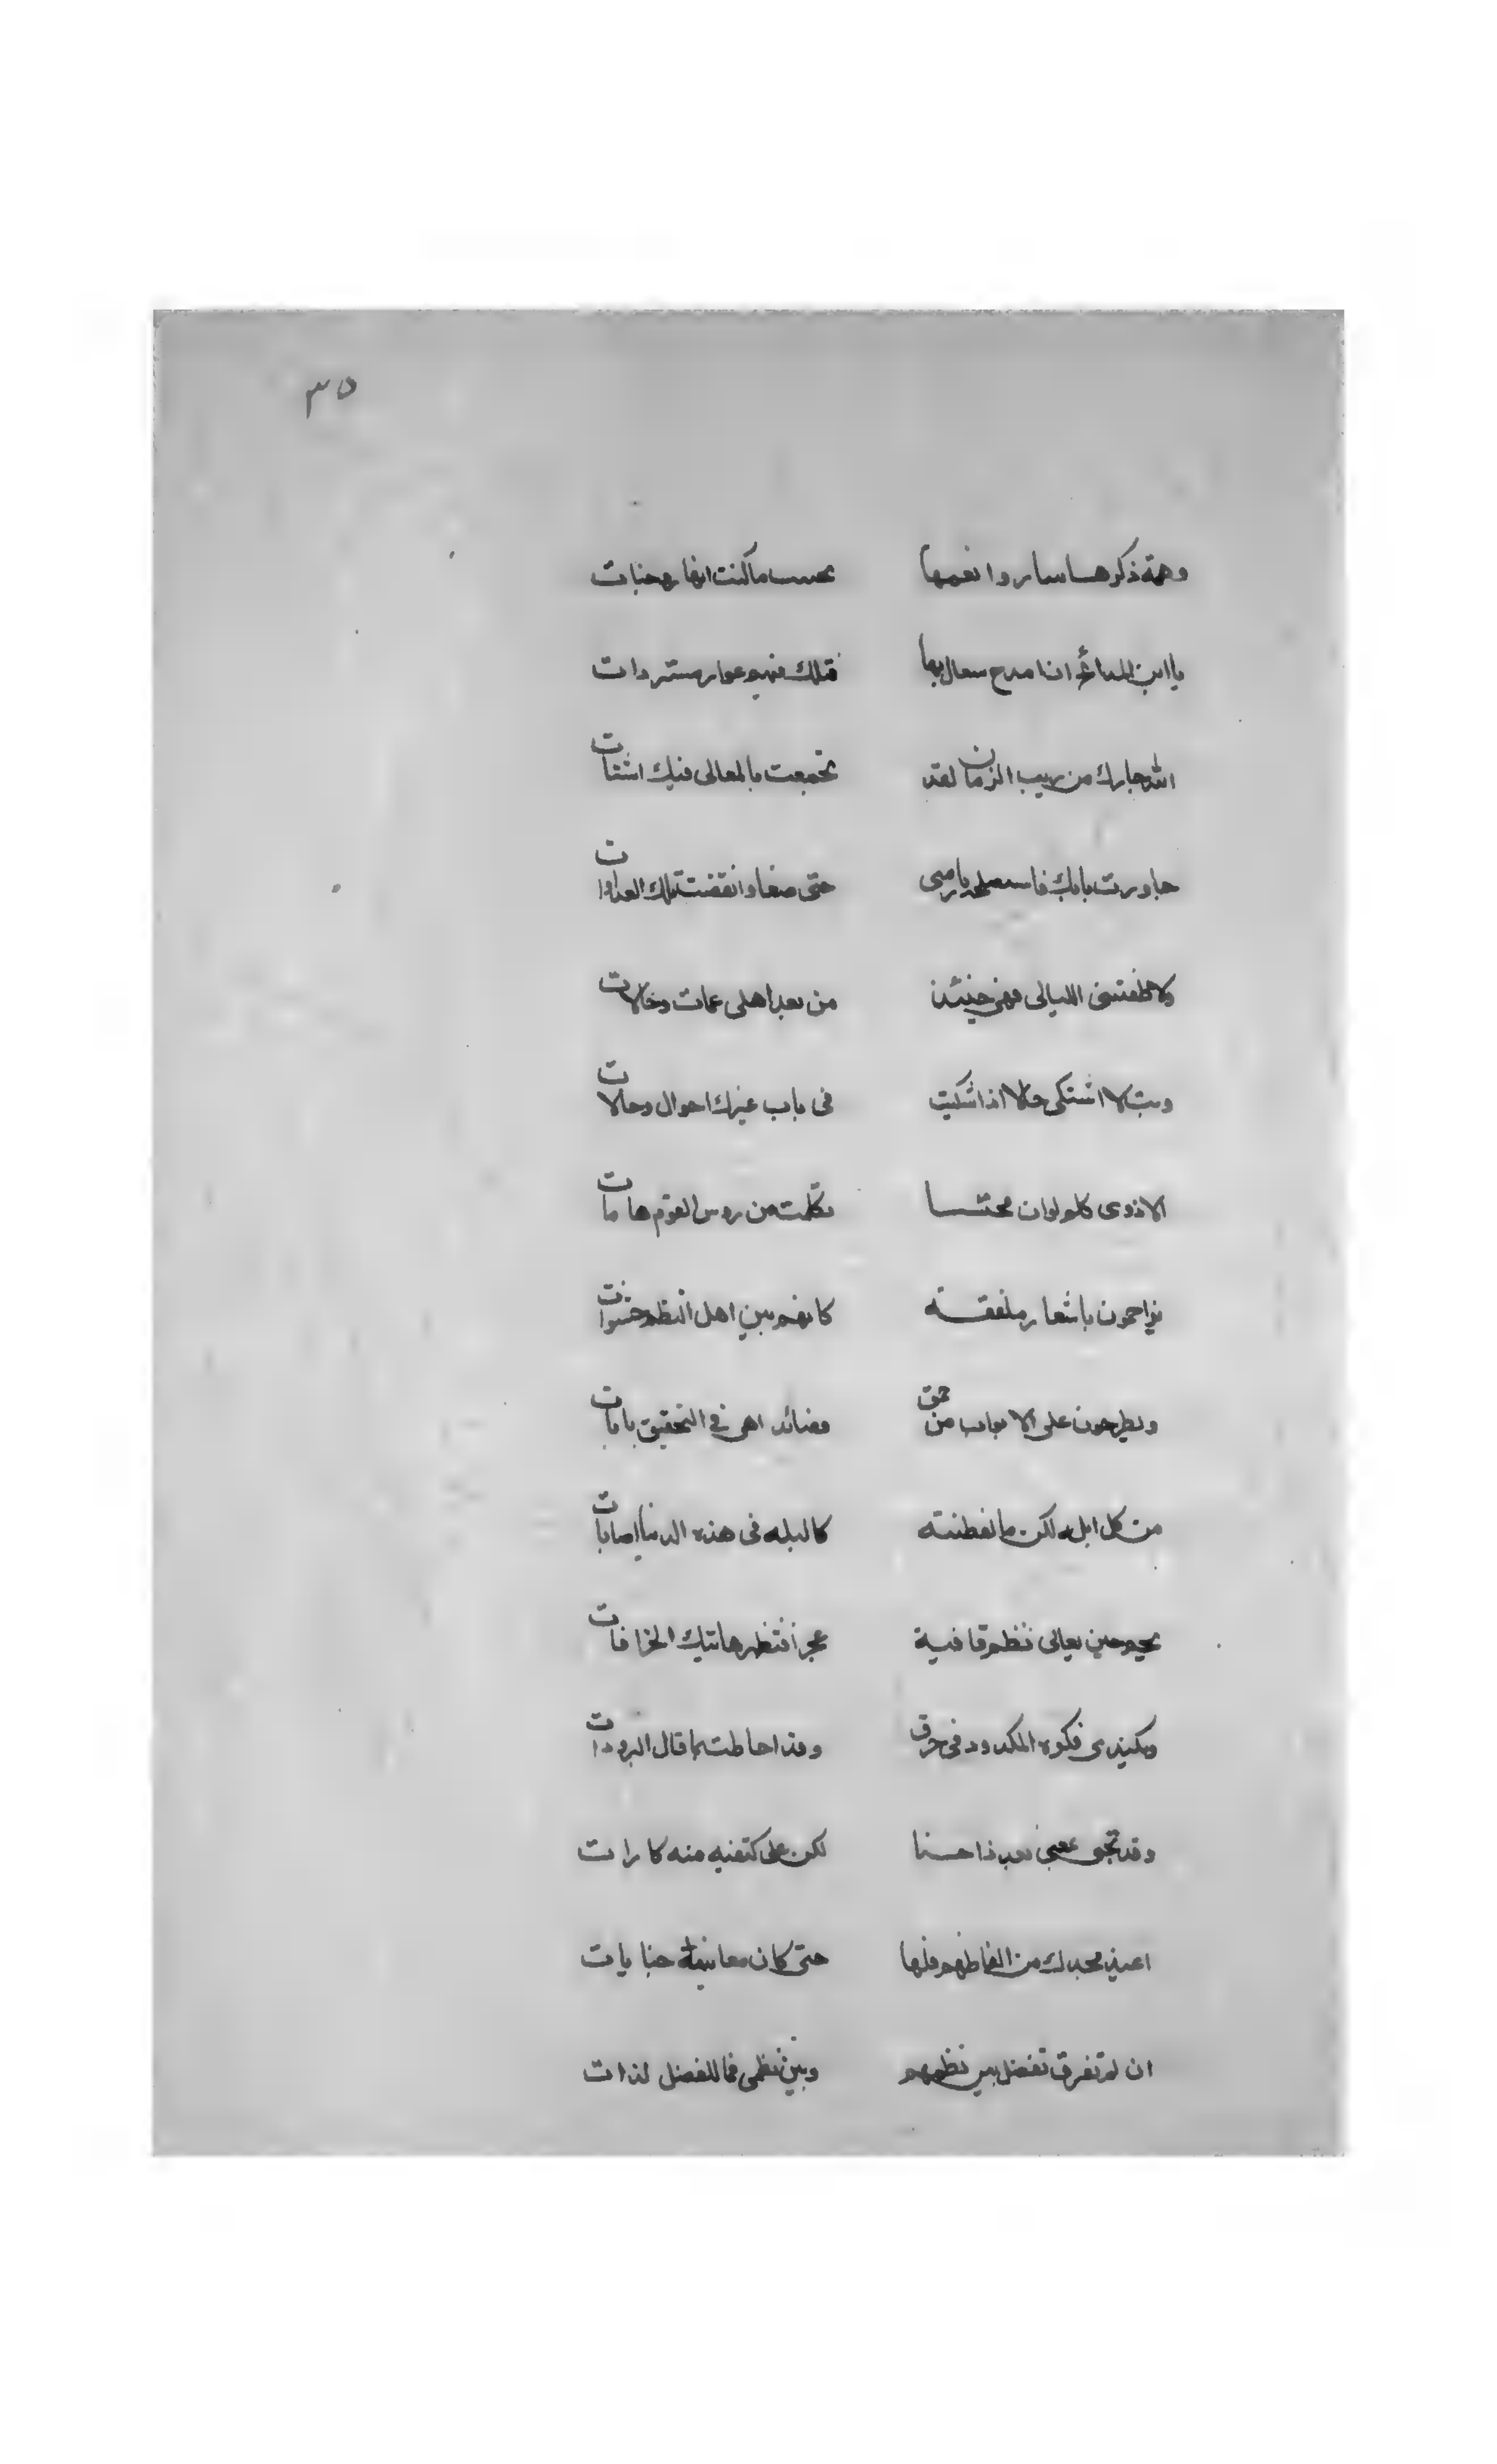 ٣٥
وهمة ذكرها سار وانعمها ما كنت
يا ابن المدائح انا مدح سعال بها فتلك فيهم عوار مستردات
الله جارك من ريب الزمان لقد تجمعت بالمعالى فيك اشتات
جاورت بابك زمنى حتى صفا وانقضت تلك العداوات
ولاطفتنى الليالى فهى حينئذ من بعد اهلى عمات وخالات
وبت لا اشتكى حالا اذا شكيت فى باب غيرك احوال وحالات
الا ذوى كلم لو ان محتسبا تكلمت من روس القوم هامات
يزاحمون باشعار ملفقة كانهم بين اهل النظم حشوات
ويطرحون على الابواب من حمق قصائد اهى فى التحقيق بابات
من كل ابله لكن ما لفطنته كالبله فى هذه الدنيا اصابات
يحم حين يعانى نظم قافية عجزا فتظهر هاتيك الخرافات
ويكتدى فكره المكدود فى حرق وقد احاطت بما قال البرودات
وقد تجى بعد ذا حسنا لكن على كتفيه منه كارات
اعيذ مجدك من الفاظهم فلها حتى كان معانيها جنايات
ان لم تفرق تفضل بين نظمهم وبين نظمى فما للفضل لذات